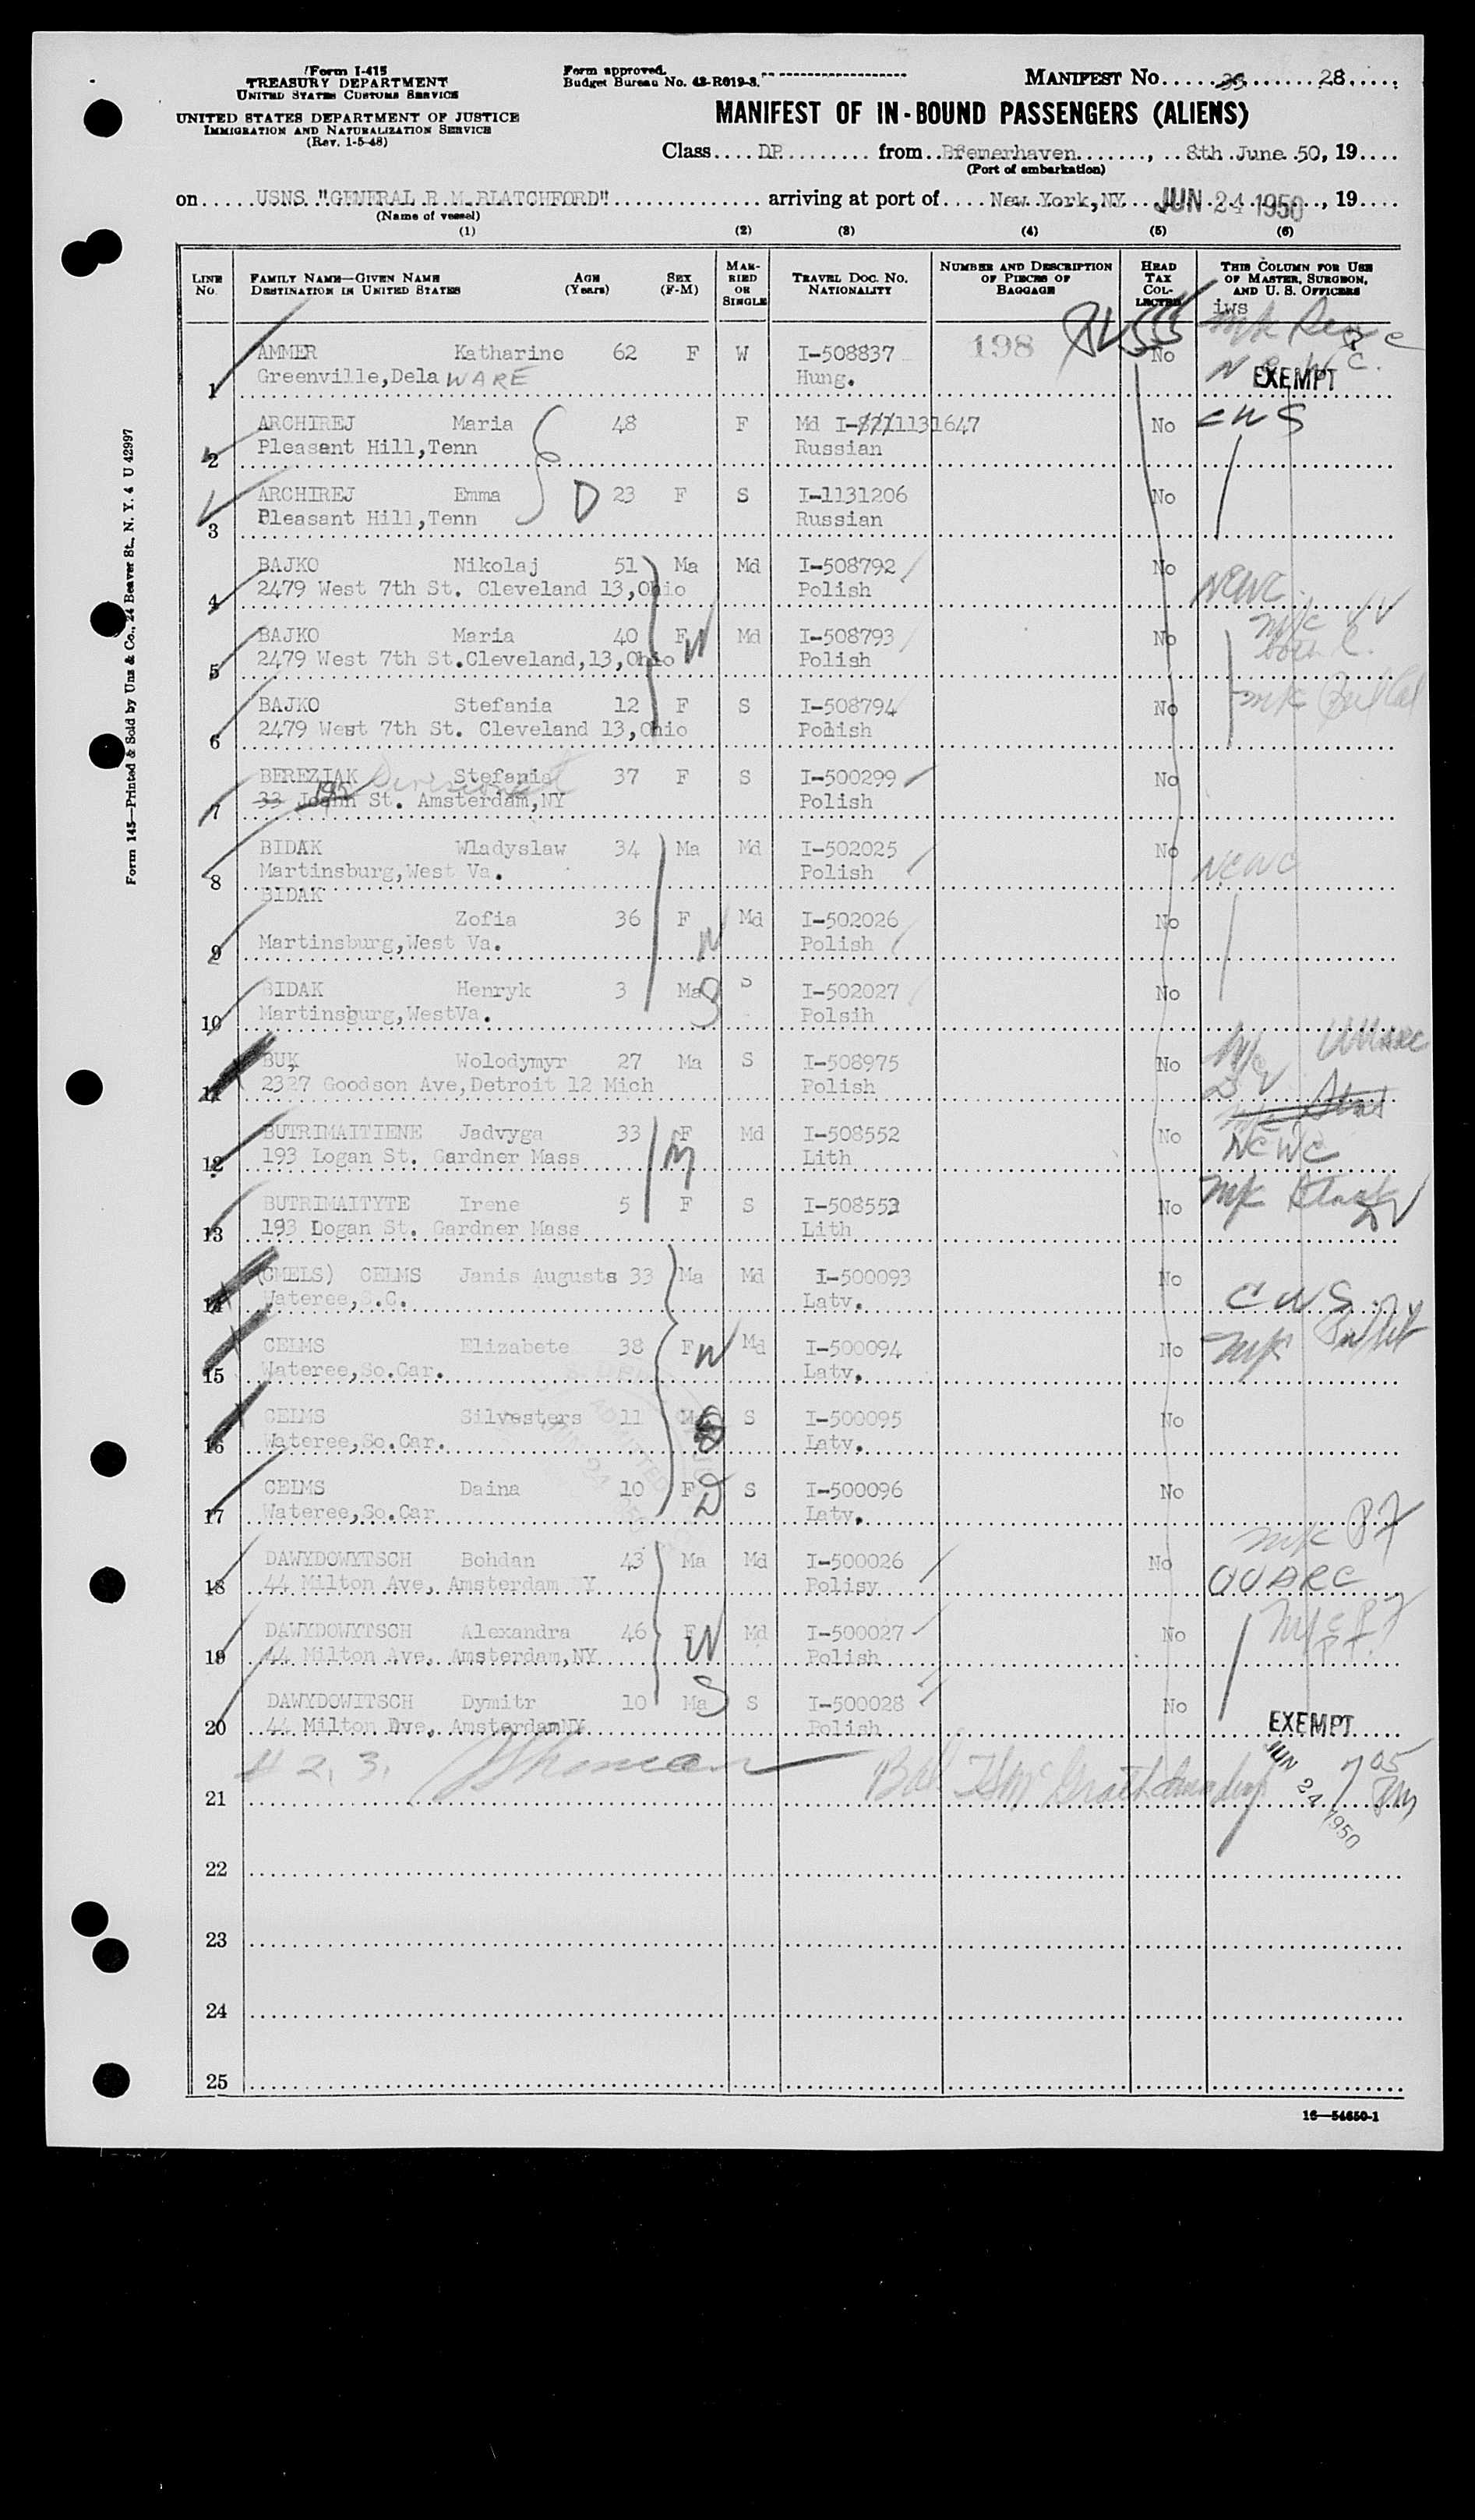 Form I-415
TREASURY DEPARTMENT
UNITED STATES CUSTOMS SERVICE
UNITED STATES DEPARTMENT OF JUSTICE
IMMIGRATION AND NATURALIZATION SERVICE
(Rev. 1-5-48)
Form approved.
Budget Bureau No. 43-R019-3.
MANIFEST No. 28
MANIFEST OF IN-BOUND PASSENGERS (ALIENS)
Class DP from Bremerhaven, 8th June 50, 19
(Port of embarkation)
on USNS "GENERAL R.M.BLATCHFORD" arriving at port of New York,NY JUN 24 1950, 19
(Name of vessel)
(1) (2) (3) (4) (5) (6)
LINE No. FAMILY NAME—GIVEN NAME DESTINATION IN UNITED STATES AGE (Years) SEX (F-M) MARRIED OR SINGLE TRAVEL DOC. NO. NATIONALITY NUMBER AND DESCRIPTION OF PIECES OF BAGGAGE HEAD TAX COLLECTED THIS COLUMN FOR USE OF MASTER, SURGEON, AND U. S. OFFICERS
iws
198
AMMER Katharine 62 F W I-508837 No
1 Greenville,Dela WARE Hung. EXEMPT
ARCHIREJ Maria 48 F Md I-1131647 No CWS
2 Pleasant Hill,Tenn Russian
ARCHIREJ Emma D 23 F S I-1131206 No
3 Pleasant Hill,Tenn Russian
BAJKO Nikolaj 51 Ma Md I-508792 No
4 2479 West 7th St. Cleveland 13,Ohio Polish NCWC
BAJKO Maria 40 F W Md I-508793 No
5 2479 West 7th St.Cleveland,13,Ohio Polish
BAJKO Stefania 12 F S I-508794 No
6 2479 West 7th St. Cleveland 13,Ohio Podish
BEREZIAK Stefania 37 F S I-500299 No
7 33 John St. Amsterdam,NY Polish
BIDAK Wladyslaw 34 Ma Md I-502025 No
8 Martinsburg,West Va. Polish NCWC
BIDAK
Zofia 36 F W Md I-502026 No
9 Martinsburg,West Va. Polish
BIDAK Henryk 3 Ma S S I-502027 No
10 Martinsburg,WestVa. Polsih
BUK Wolodymyr 27 Ma S I-508975 No
11 2327 Goodson Ave,Detroit 12 Mich Polish
BUTRIMAITIENE Jadvyga 33 F M Md I-508552 No NCWC
12 193 Logan St. Gardner Mass Lith
BUTRIMAITYTE Irene 5 F S I-508553 No
13 193 Logan St. Gardner Mass Lith
(CMELS) CELMS Janis Augusts 33 Ma Md I-500093 No
14 Wateree,S.C. Latv. CWS
CELMS Elizabete 38 F W Md I-500094 No
15 Wateree,So.Car. Latv.
CELMS Silvesters 11 Ma S I-500095 No
16 Wateree,So.Car. Latv.
CELMS Daina 10 F D S I-500096 No
17 Wateree,So.Car Latv.
DAWYDOWYTSCH Bohdan 43 Ma Md I-500026 No
18 44 Milton Ave, Amsterdam NY Polisy
DAWYDOWYTSCH Alexandra 46 F W Md I-500027 No
19 44 Milton Ave, Amsterdam,NY Polish
DAWYDOWITSCH Dymitr 10 Ma S S I-500028 No
20 44 Milton Dve, AmsterdamNY Polish EXEMPT
# 2, 3.
JUN 24 1950
21
22
23
24
25
16—54650-1
Form 145—Printed & Sold by Unz & Co., 24 Beaver St., N. Y. 4 U 42997